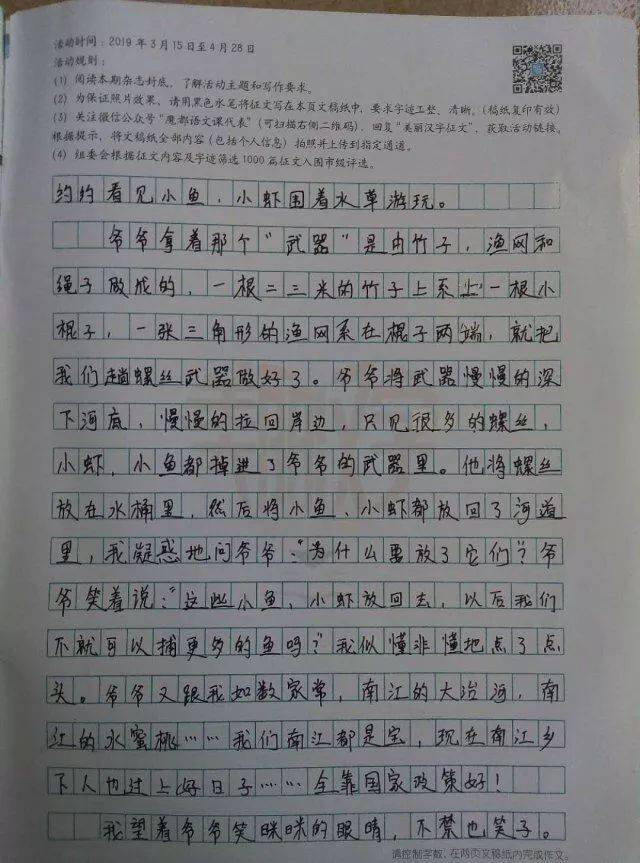 活动时间：2019 年 3 月 15 日至 4 月 28 日
活动规则：
(1) 阅读本期杂志封底，了解活动主题和写作要求。
(2) 为保证照片效果，请用黑色水笔将征文写在本页文稿纸中，要求字迹工整、清晰。(稿纸复印有效)
(3) 关注微信公众号“魔都语文课代表”（可扫描右侧二维码），回复“美丽汉字征文”，获取活动链接，
根据提示，将文稿纸全部内容（包括个人信息）拍照并上传到指定通道。
(4) 组委会根据征文内容及字迹筛选 1000 篇征文入围市级评选。
约约看见小鱼、小虾围着水草游玩。
爷爷拿着那个“武器”是由竹子，渔网和
绳子做成的，一根二三米的竹子上系上一根小
棍子，一张三角形的渔网系在棍子两端，就把
我们趟螺丝武器做好了。爷爷将武器慢慢的深
下河底，慢慢的拉回岸边，只见很多的螺丝，
小虾，小鱼都掉进了爷爷的武器里。他将螺丝
放在水桶里，然后将小鱼、小虾都放回了河道
里，我疑惑地问爷爷：“为什么要放了它们？”爷
爷笑着说：“这些小鱼、小虾放回去，以后我们
不就可以捕更多的鱼吗？”我似懂非懂地点了点
头。爷爷又跟我如数家常，南江的大治河，南
江的水蜜桃……我们南江都是宝，现在南江乡
下人也过上好日子……全靠国家政策好！
我望着爷爷笑眯眯的眼睛，不禁也笑了。
请控制字数，在两页文稿纸内完成作文。